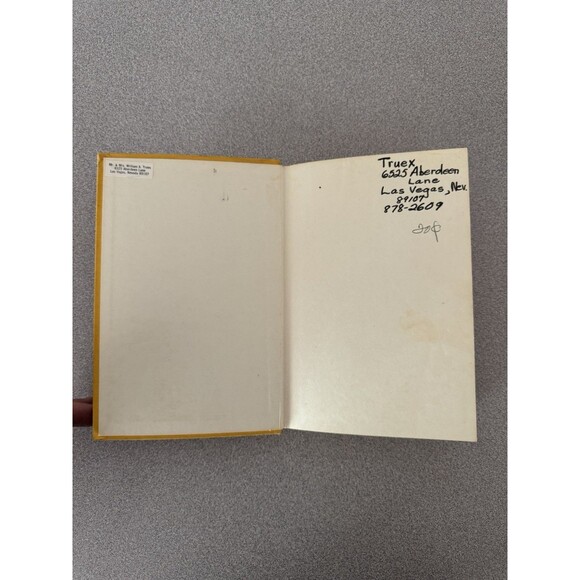 Mr. & Mrs. William A Truex
6525 Aberdeen Lane
Las Vegas, Nevada 89107
Truex
6525 Aberdeen
Lane
Las Vegas, Nev.
89107
878-2609
20¢